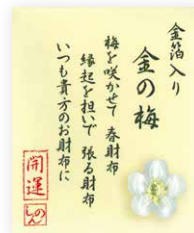 金箔入り
金の梅
梅を咲かせて 春財布
縁起を担いで 張る財布
いつも貴方のお財布に
開運
のれん